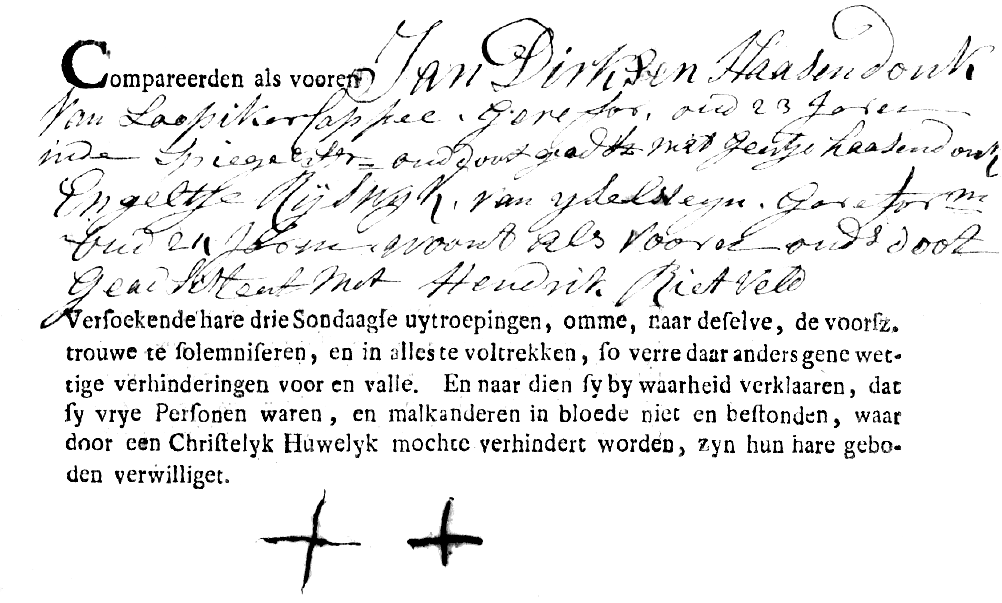 Compareerden als vooren Jan Dirksen Haasendonk
van Loopikercappel. Gerefor. oud 23 Jaren
inde Spiegelstr= oud doot geadst met Jentje haasendonk
Engeltje Rijswyk. van ydelsteyn. Gereform
Oud 21 Jaren. woont als vooren ouds doot
Geadsisteert Met Hendrik Rietveld
Verſoekende hare drie Sondaagſe uytroepingen, omme, naar deſelve, de voorſz.
trouwe te ſolemniſeren, en in alles te voltrekken, ſo verre daar anders gene wet-
tige verhinderingen voor en valle. En naar dien ſy by waarheid verklaaren, dat
ſy vrye Perſonen waren, en malkanderen in bloede niet en beſtonden, waar
door een Chriſtelyk Huwelyk mochte verhindert worden, zyn hun hare gebo-
den verwilliget.